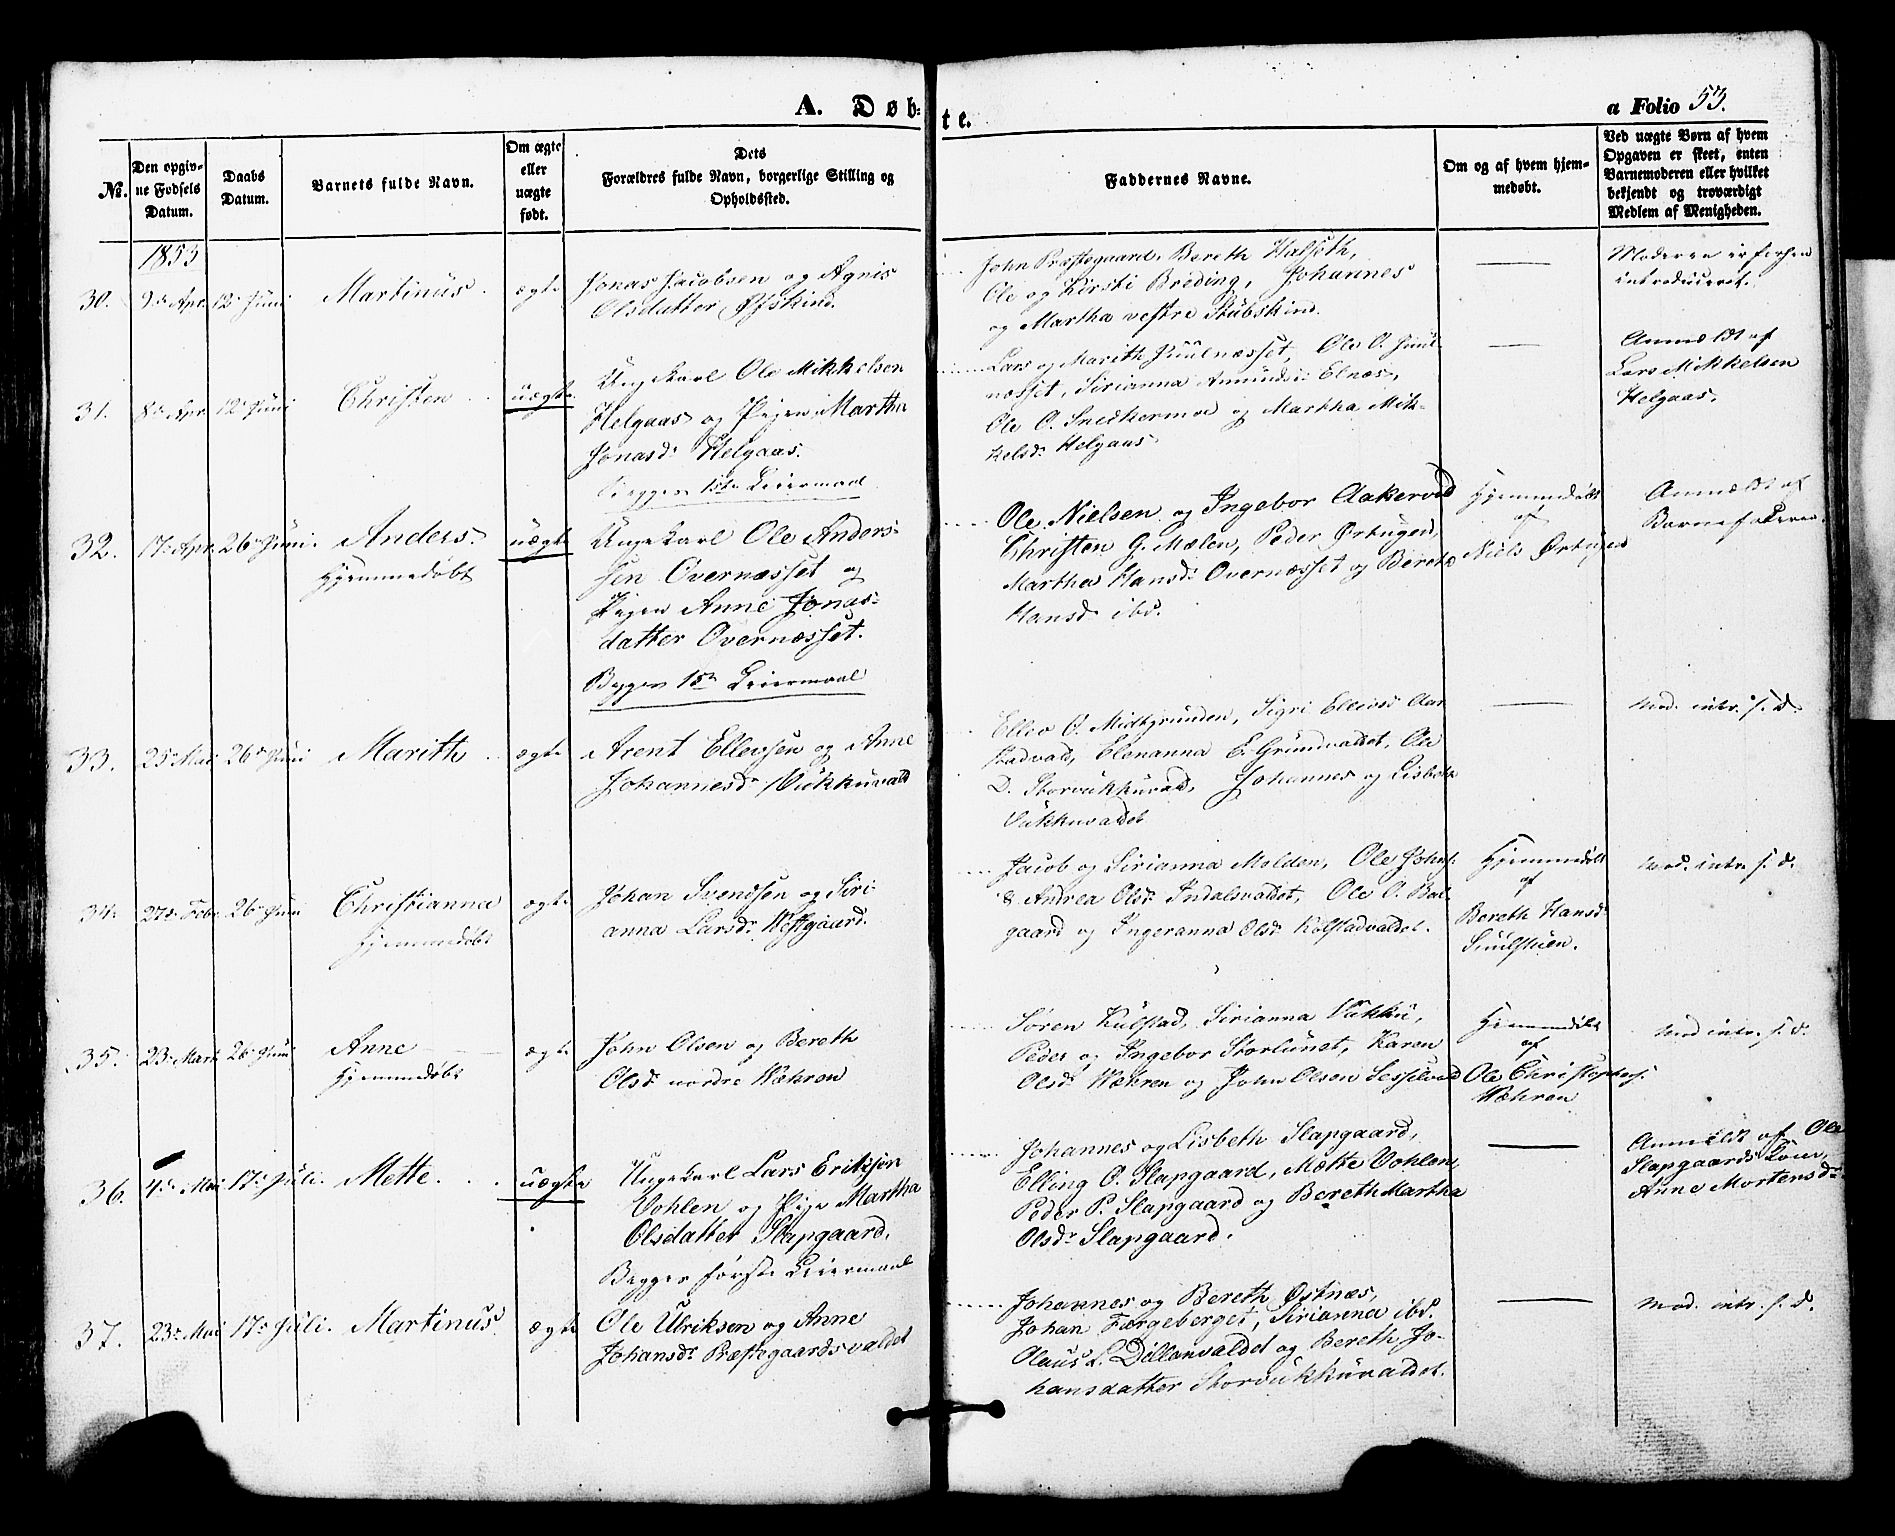 A. Døb-
te.
a Folio 53.
No.
Den opgiv-
ne Fødsels
Datum.
Daabs
Datum.
Barnets fulde Navn.
Om ægte
eller
uægte
født.
Dets
Forældres fulde Navn, borgerlige Stilling og
Opholdssted.
Faddernes Navne.
Om og af hvem hjem-
medøbt.
Ved uægte Børn af hvem
Opgaven er skeet, enten
Barnemoderen eller hvilket
bekjendt og troværdigt
Medlem af Menigheden.
1853
30. 9de Apr. 12te Juni Martinus. ægte
Jonas Jacobsen og Agnis
Olsdatter Østskind.
John Præstegaard, Bereth Halseth,
Ole og Kirsti Breding, Johannes
og Martha vestre Stubskind.
Moderen
introduceret.
31. 8de Apr 12te Juni Christen uægte
Ungkarl Ole Mikkelsen
Helgaas og Pigen Martha
Jonasdr Helgaas.
Begges 1ste Leiermaal
Lars og Marith Juulnæsset, Ole O. Juul-
næsset, Sirianna Amunds. Elnæs,
Ole O. Snedkermoe og Martha Mik-
kelsdr Helgaas
Anmeldt af
Lars Mikkelsen
Helgaas.
32. 17de Apr. 26de Juni. Anders. uægte
Hjemmedøbt
Ungekarl Ole Anders-
sen Overnæsset og
Pigen Anne Jonas-
datter Overnæsset.
Begges 1ste Leiermaal
Ole Nielsen og Ingebor Aakervold
Christen G. Mælen, Peder Ørtugen,
Martha Hansdr Overnæsset og Bereth
Hansd ibd.
Hjemmedøbt
af
Niels Ørtugen
Anmeldt af
Barnefaderen.
33. 25de Mai 26de Juni Marith ægte
Arent Ellevsen og Anne
Johannesdr Vukkuvald
Ellev O. Midtgrunden, Sigri Ellevsd Aar
stadvald, Elenanna E. Grundvaldet, Ole
D. Storvukkuvald, Johannes og Lisbeth
Vukkuvaldet
Mod. intr. s. d.
34. 27de Febr 26de Juni Christianna ægte
Hjemmedøbt
Johan Svendsen og Siri-
anna Larsdr Vestgaard.
Jacob og Sirianna Molden, Ole Johns.
& Andrea Olsdr Indalsvaldet, Ole O. Bal-
gaard og Ingeranna Olsdr Kolstadvaldet.
Hjemmedøbt
af
Bereth Hansdr
Juulstuen.
Mod. intr. s. d.
35. 23de Marts 26de Juni Anne ægte
Hjemmedøbt
John Olsen og Bereth
Olsdr nordre Wæhren
Søren Kulstad, Sirianna Vukku,
Peder og Ingebor Storlunet, Karen
Olsdr Wæhren og John Olsen Sesselvold
Hjemmedøbt
af
Ole Christophers.
Wæhren
Mod intr. s. d.
36. 4de Mai 17de Juli. Mette. uægte
Ungekarl Lars Eriksen
Vohlen og Pige Martha
Olsdatter Slapgaard.
Begges første Leiermaal
Johannes og Lisbeth Slapgaard,
Elling O. Slapgaard, Mætte Vohlen,
Peder P. Slapgaard og Bereth Martha
Olsdr Slapgaard.
Anmeldt af Ole
Slapgaards Kone,
Anne Mortensdr
37. 23de Mai 17de Juli. Martinus ægte
Ole Ulriksen og Anne
Johansdr Præstegaardsvaldet
Johannes og Bereth Østnæs,
Johan Færgeberget, Sirianna ibd.
Olaus L. Dillanvaldet og Bereth Jo-
hansdatter Storvukkuvaldet.
Mod. intr. s. d.